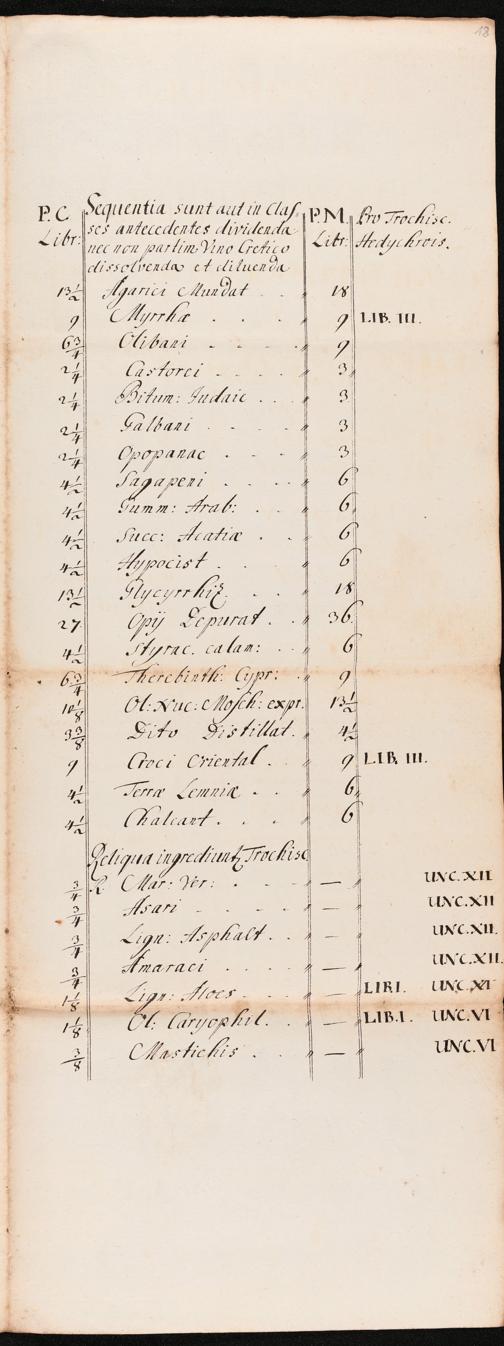 18
P. C. Sequentia sunt aut in Clas= P. M. Pro Trochisc.
Libr: ses antecedentes dividenda Libr: Hedychrois.
nec non partim Vino Cretico
dissolvenda et diluenda
13½ Agarici Mundat . . 18
9 Myrrhæ . . . . 9 LIB. III.
6¾ Olibani - - - - 9
2¼ Castorei . . . . 3
2¼ Bitum: Judaic . . . 3
2¼ Galbani . . . . 3
2¼ Opopanac . . . 3
4½ Sagapeni . . . . 6
4½ Gumm: Arab: . . . 6
4½ Succ: Acatiæ . . 6
4½ Hypocist . . . . 6
13½ Glycyrrhiz. . . 18
27. Opij Depurat . . 36.
4½ Styrac. calam: . . 6
6¾ Therebinth: Cypr: . 9
10⅛ Ol: Nuc: Mosch: expr. 13½
3⅜ Dito Distillat. 4½
9 Croci Oriental . . 9 LIB. III.
4½ Terræ Lemniæ . . 6
4½ Chalcant . . . . 6
Reliqua ingrediuntz Trochisc
¾ R Mar: Ver: . . . — UNC. XII
¾ Asari - - - - — UNC. XII
¾ Lign: Asphalt . . — UNC. XII.
¾ Amaraci . . . . — UNC. XII.
1⅛ Lign: Aloes . . . — LIB I. UNC. VI
1⅛ Ol: Caryophil. . . — LIB. I. UNC. VI
⅜ Mastichis . . . — UNC. VI